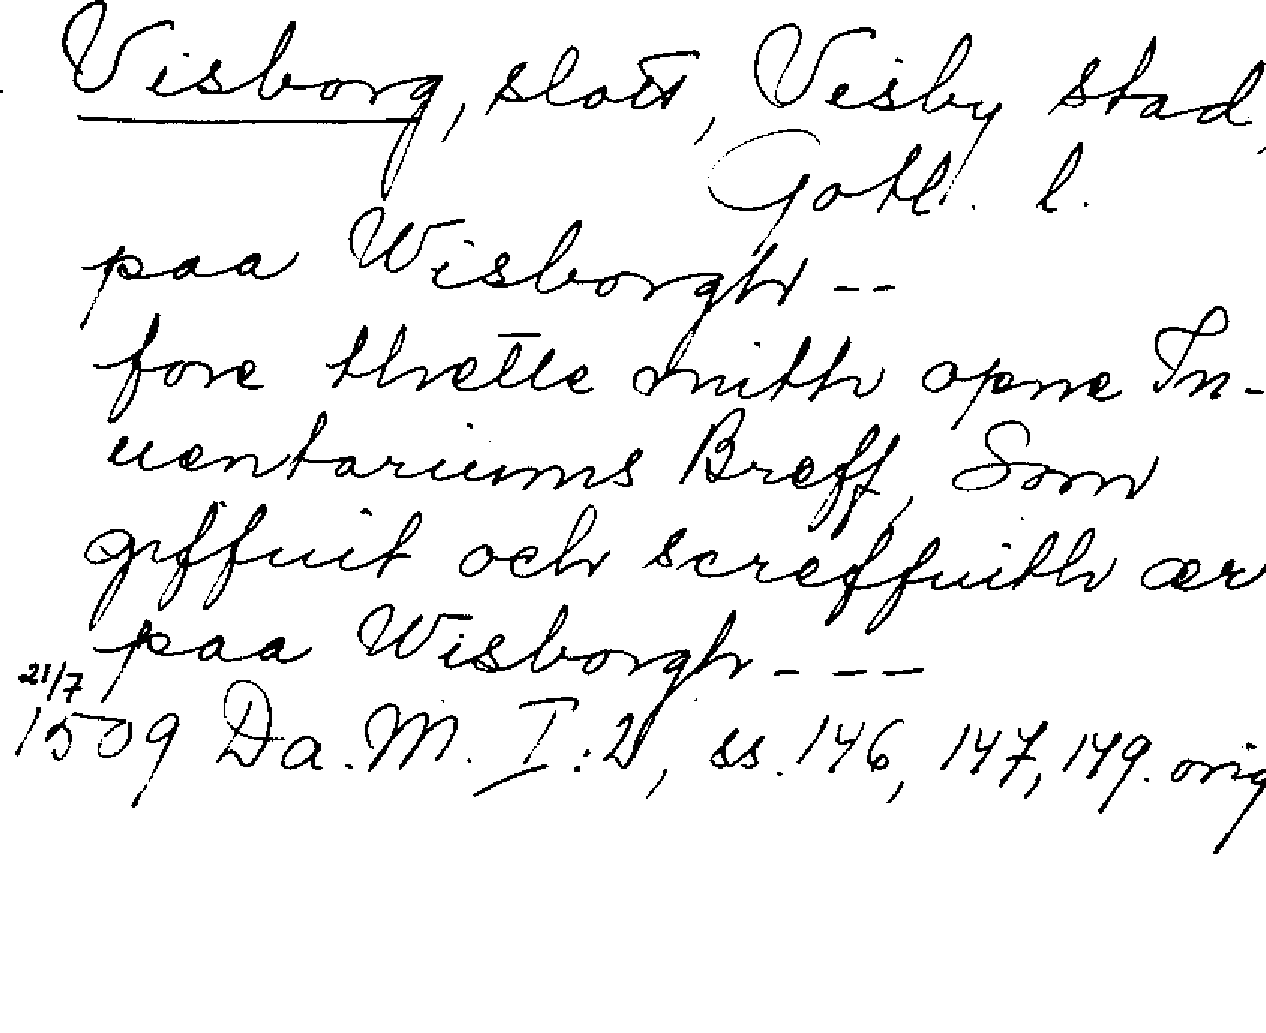 Visborg, slott, Visby stad,
Gotl. l.
paa Wisborgh --
fore thrette mith opne In-
uentariums Breff, Som
giffuit och screffuith ær
paa Wisborgh ---
21/7
1509 Da. M. I:2, ss. 146, 147, 149. orig